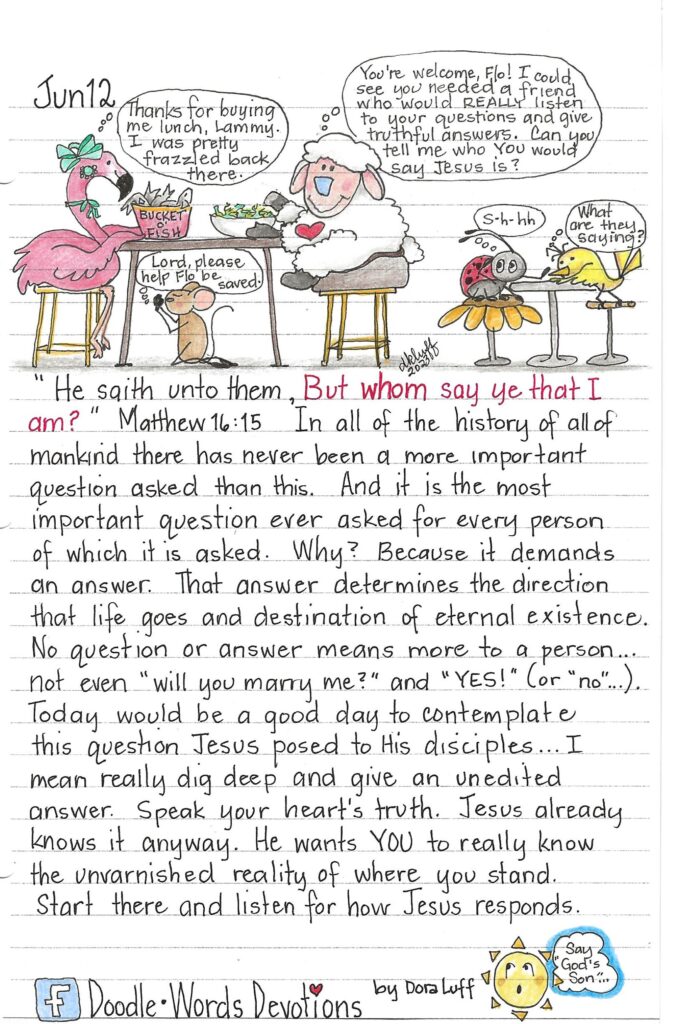 Jun 12
Thanks for buying
me lunch, Lammy.
I was pretty
frazzled back
there.
You're welcome, Flo! I could
see you needed a friend
who would REALLY listen
to your questions and give
truthful answers. Can you
tell me who YOU would
say Jesus is?
BUCKET
O'
FISH
Lord, please
help Flo be
saved.
S-h-hh
What
are they
saying?
" He saith unto them, But whom say ye that I
am? " Matthew 16:15 In all of the history of all of
mankind there has never been a more important
question asked than this. And it is the most
important question ever asked for every person
of which it is asked. Why? Because it demands
an answer. That answer determines the direction
that life goes and destination of eternal existence.
No question or answer means more to a person...
not even "will you marry me?" and "YES!" (or "no"...).
Today would be a good day to contemplate
this question Jesus posed to His disciples... I
mean really dig deep and give an unedited
answer. Speak your heart's truth. Jesus already
knows it anyway. He wants YOU to really know
the unvarnished reality of where you stand.
Start there and listen for how Jesus responds.
f Doodle•Words Devotions by Dora Luff
Say
"God's
Son"...